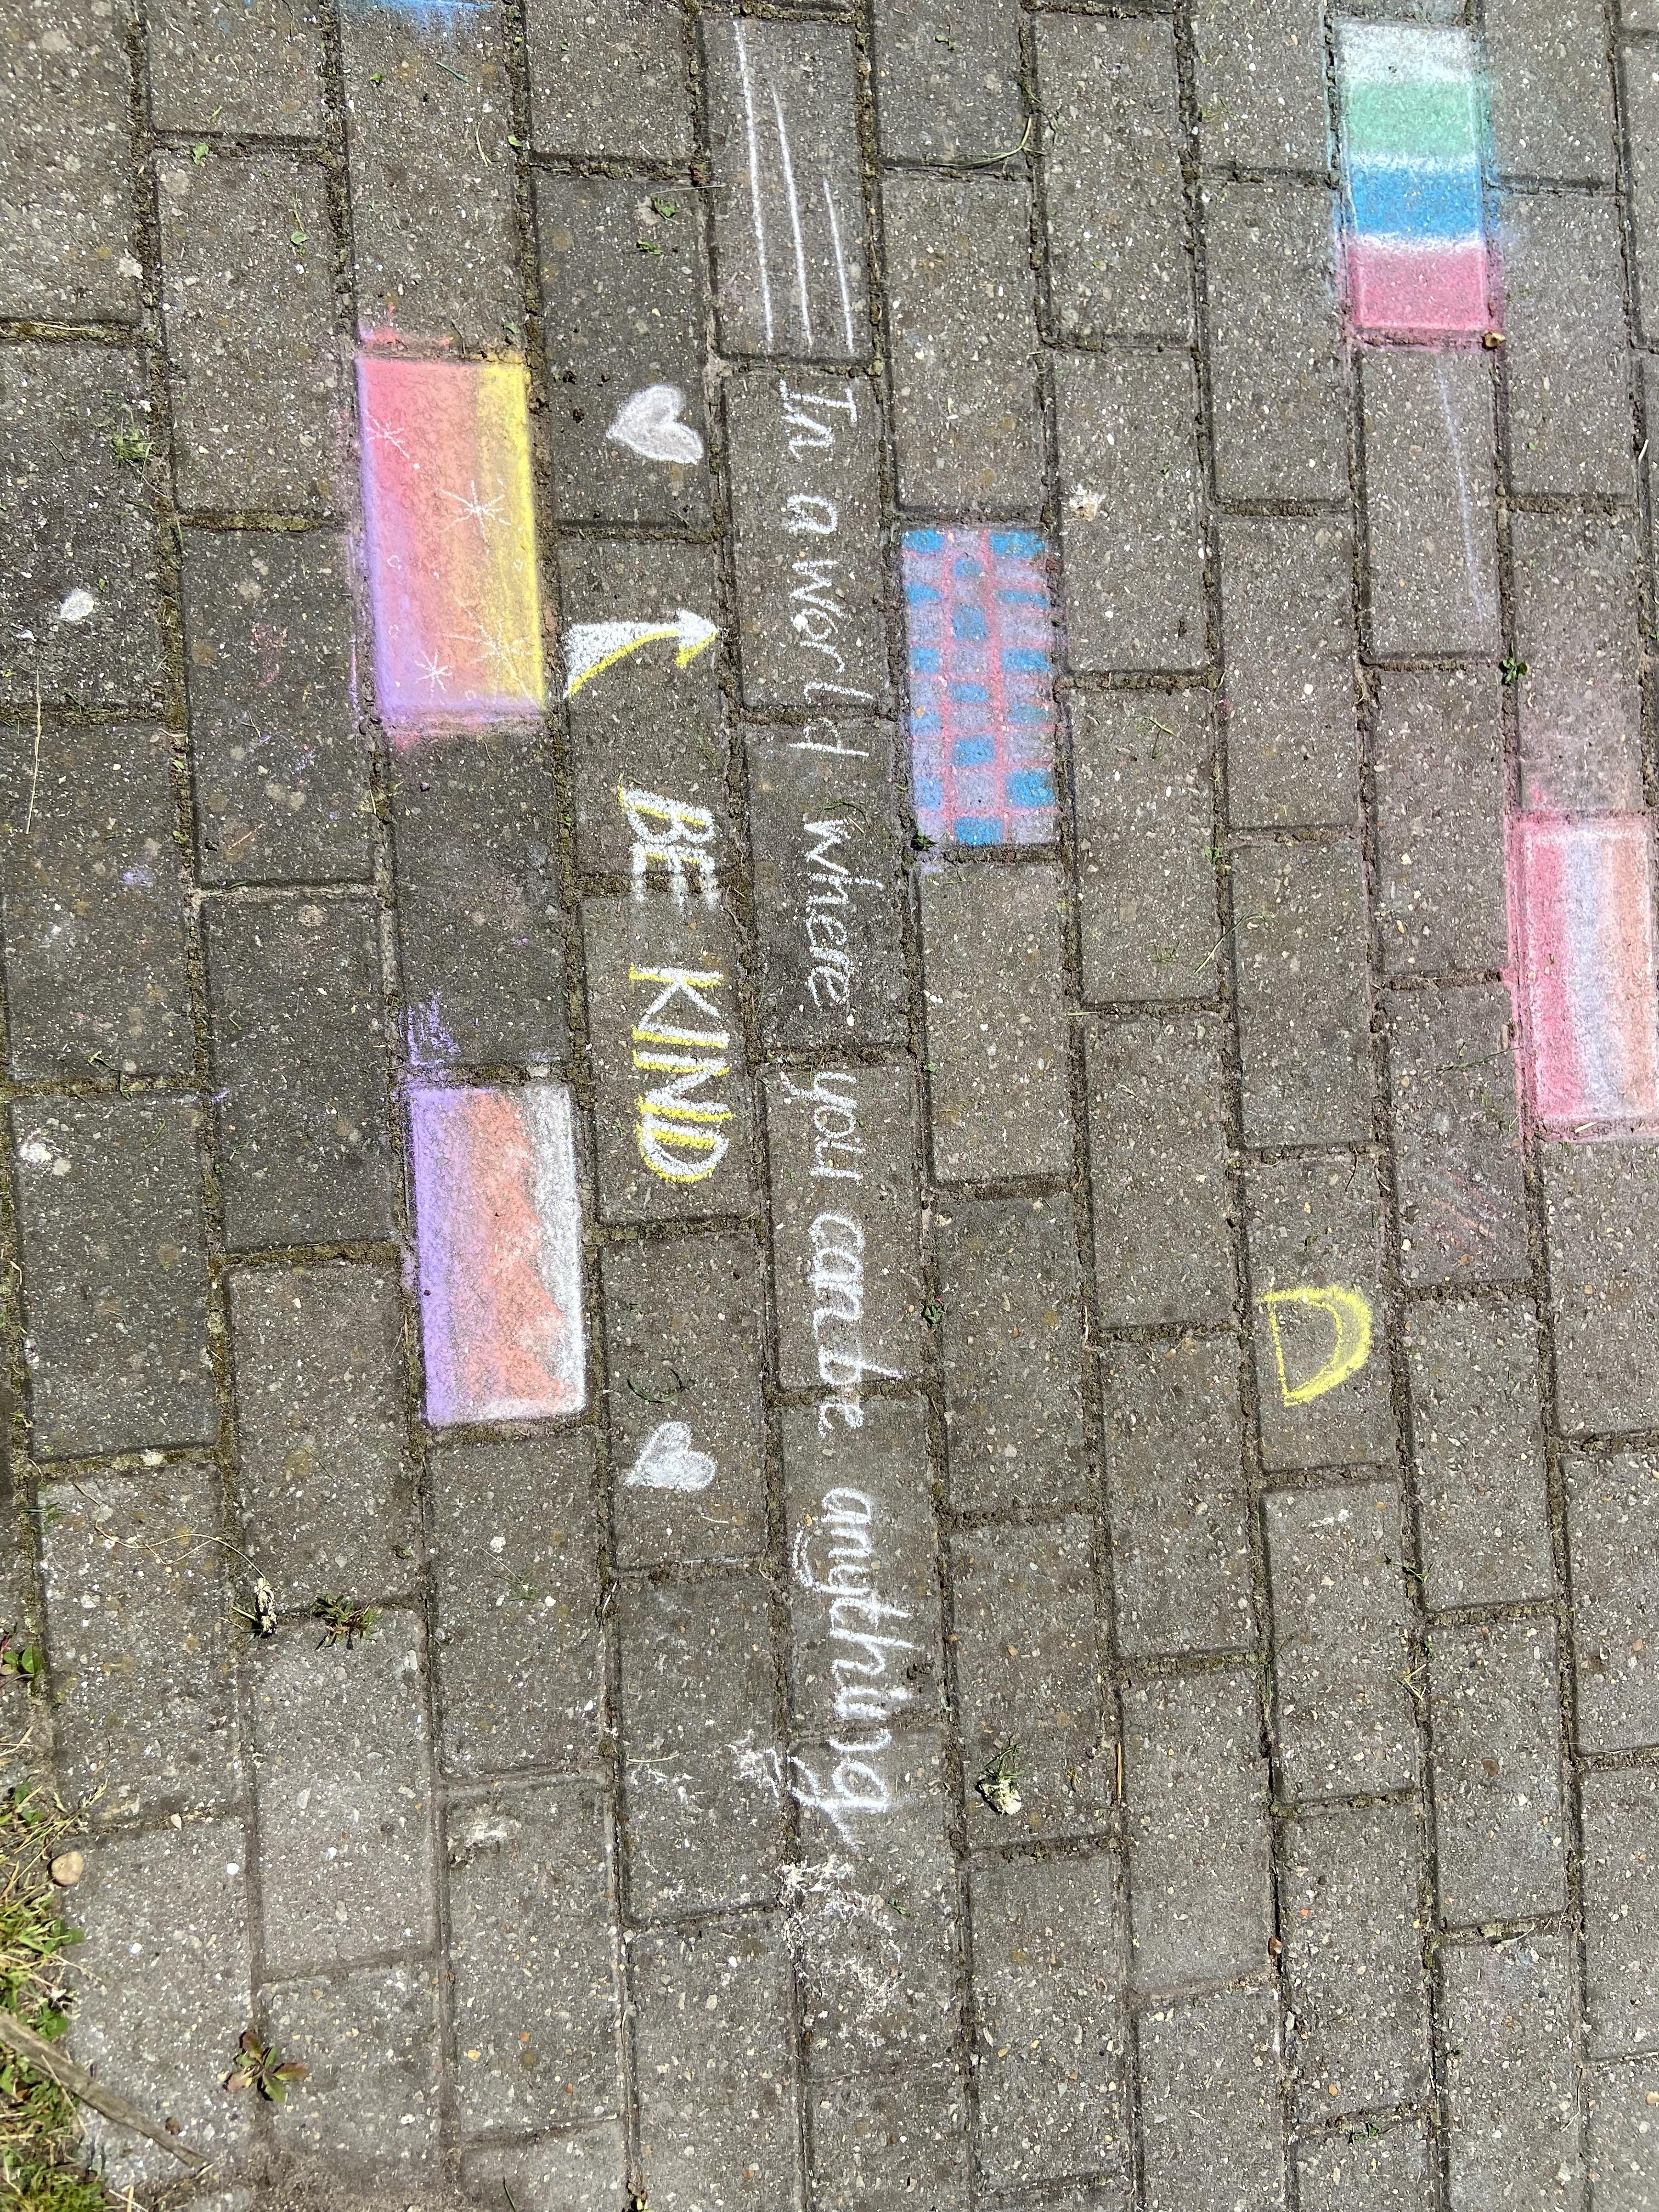 In a world where you can be anything
BE KIND
D